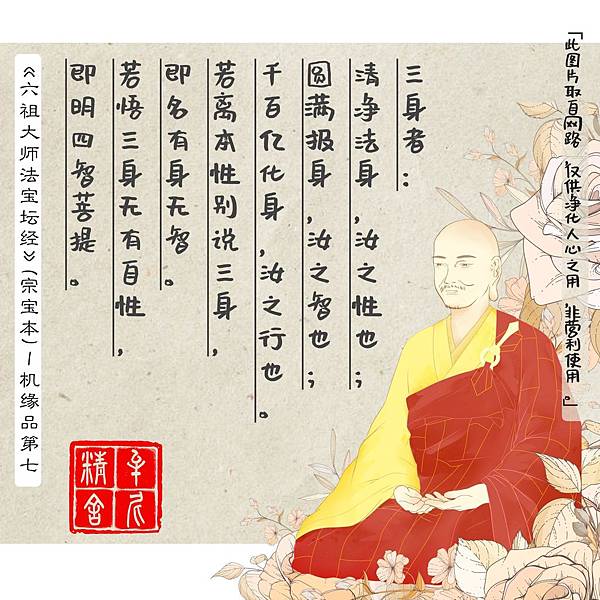 「此图片取自网路 仅供净化人心之用 非营利使用。」
三身者:
清净法身,汝之性也;
圆满报身,汝之智也;
千百亿化身,汝之行也。
若离本性别说三身,
即名有身无智。
若悟三身无有自性,
即明四智菩提。
《六祖大师法宝坛经》(宗宝本)—机缘品第七
精舍